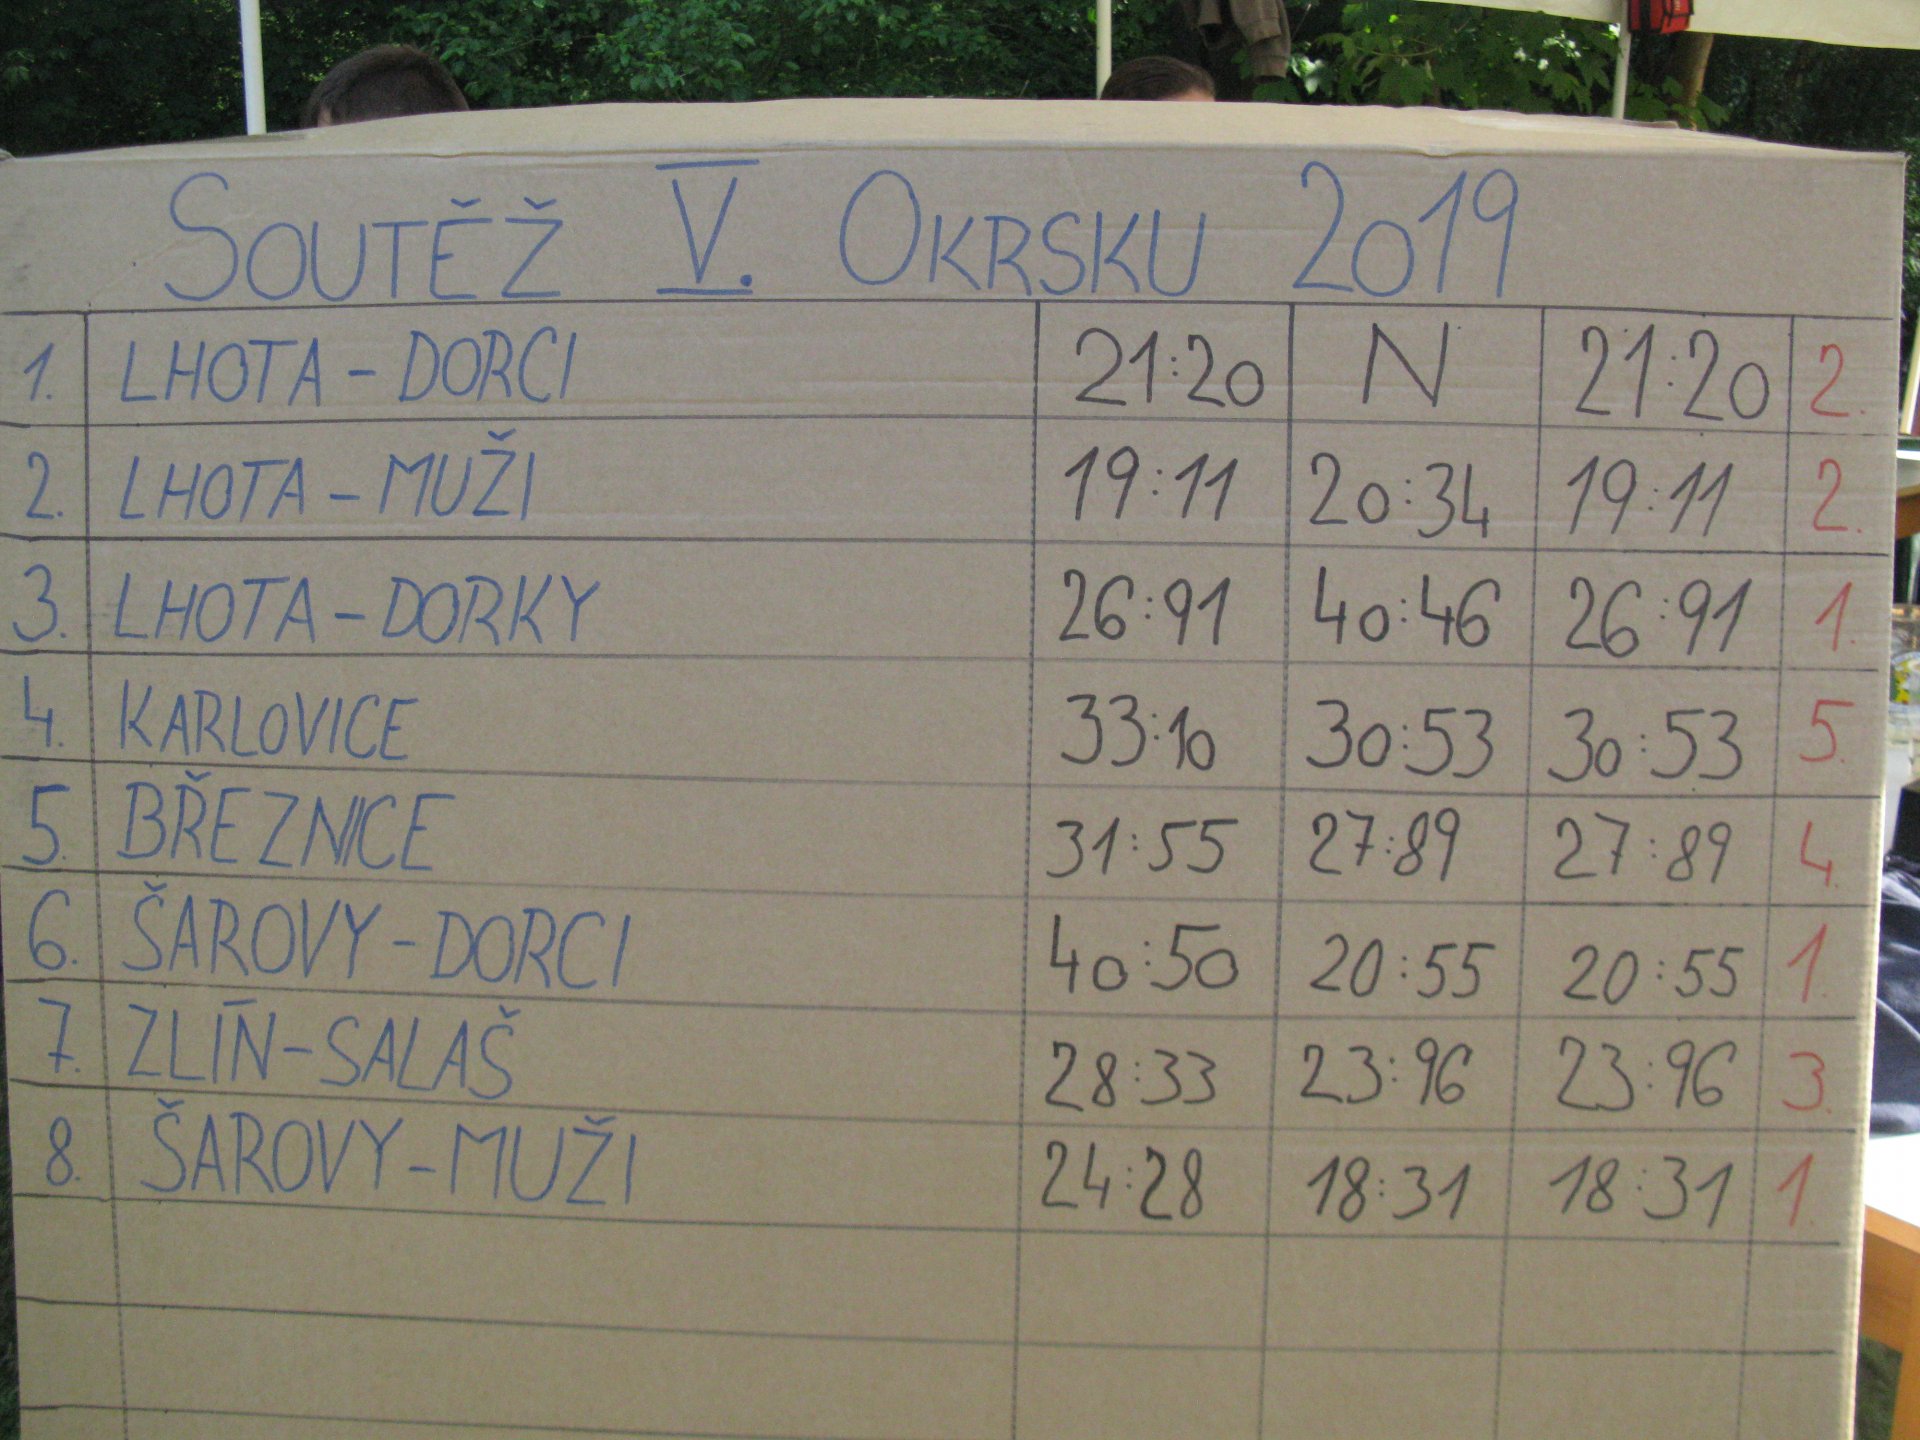 SOUTĚŽ V. OKRSKU 2019
1. LHOTA - DORCI 21:20 N 21:20 2.
2. LHOTA - MUŽI 19:11 20:34 19:11 2.
3. LHOTA - DORKY 26:91 40:46 26:91 1.
4. KARLOVICE 33:10 30:53 30:53 5.
5. BŘEZNICE 31:55 27:89 27:89 4.
6. ŠAROVY - DORCI 40:50 20:55 20:55 1.
7. ZLÍN - SALAŠ 28:33 23:96 23:96 3.
8. ŠAROVY - MUŽI 24:28 18:31 18:31 1.